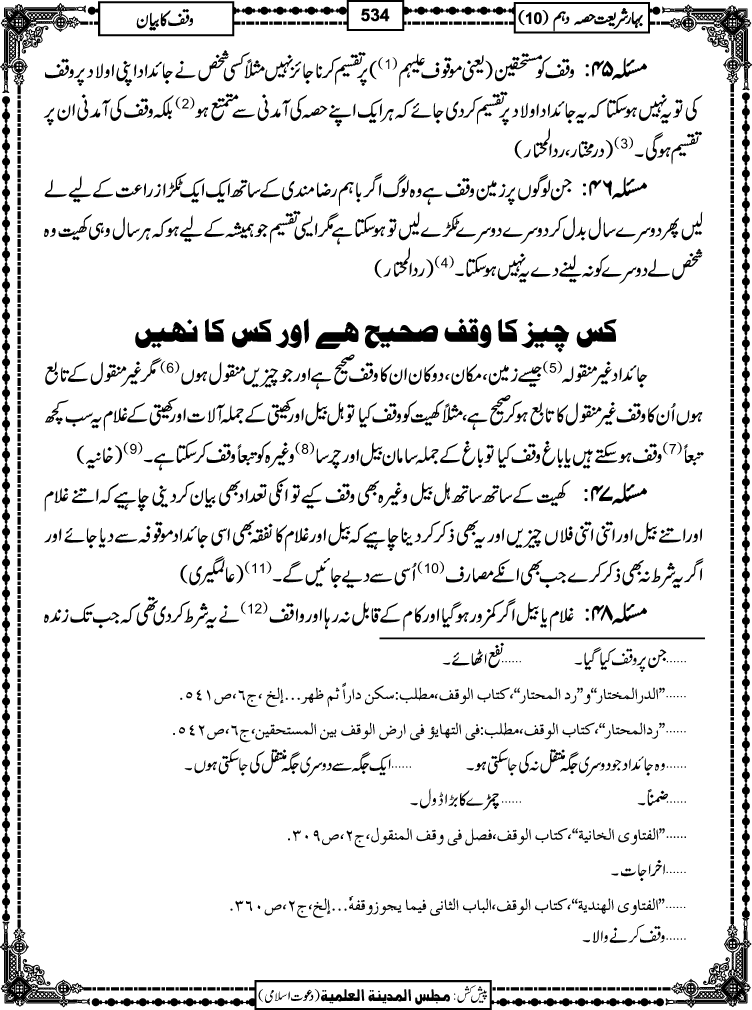 بہار شریعت حصہ دہم (10)
534
وقف کا بیان
مسئلہ ۴۵: وقف کو مستحقین (یعنی موقوف علیہم (1)) پر تقسیم کرنا جائز نہیں مثلاً کسی شخص نے جائداد اپنی اولاد پر وقف
کی تو یہ نہیں ہوسکتا کہ یہ جائداد اولاد پر تقسیم کر دی جائے کہ ہر ایک اپنے حصہ کی آمدنی سے متمتع ہو (2) بلکہ وقف کی آمدنی ان پر
تقسیم ہوگی۔ (3) (درمختار، ردالمحتار)
مسئلہ ۴۶: جن لوگوں پر زمین وقف ہے وہ لوگ اگر باہم رضامندی کے ساتھ ایک ایک ٹکڑا زراعت کے لیے لے
لیں پھر دوسرے سال بدل کر دوسرے دوسرے ٹکڑے لیں تو ہوسکتا ہے مگر ایسی تقسیم جو ہمیشہ کے لیے ہو کہ ہر سال وہی کھیت وہ
شخص لے دوسرے کو نہ لینے دے یہ نہیں ہوسکتا۔ (4) (ردالمحتار)
کس چیز کا وقف صحیح ہے اور کس کا نہیں
جائداد غیر منقولہ (5) جیسے زمین، مکان، دوکان ان کا وقف صحیح ہے اور جو چیزیں منقول ہوں (6) مگر غیر منقول کے تابع
ہوں اُن کا وقف غیر منقول کا تابع ہو کر صحیح ہے، مثلاً کھیت کو وقف کیا تو ہل بیل اور کھیتی کے جملہ آلات اور کھیتی کے غلام یہ سب کچھ
تبعاً (7) وقف ہوسکتے ہیں یا باغ وقف کیا تو باغ کے جملہ سامان بیل اور چرسا (8) وغیرہ کو تبعاً وقف کر سکتا ہے۔ (9) (خانیہ)
مسئلہ ۴۷: کھیت کے ساتھ ساتھ ہل بیل وغیرہ بھی وقف کیے تو انکی تعداد بھی بیان کر دینی چاہیے کہ اتنے غلام
اور اتنے بیل اور اتنی اتنی فلاں چیزیں اور یہ بھی ذکر کر دینا چاہیے کہ بیل اور غلام کا نفقہ بھی اسی جائداد موقوفہ سے دیا جائے اور
اگر یہ شرط نہ بھی ذکر کرے جب بھی انکے مصارف (10) اُسی سے دیے جائیں گے۔ (11) (عالمگیری)
مسئلہ ۴۸: غلام یا بیل اگر کمزور ہوگیا اور کام کے قابل نہ رہا اور واقف (12) نے یہ شرط کر دی تھی کہ جب تک زندہ
......جن پر وقف کیا گیا۔ ......نفع اٹھائے۔
......”الدرالمختار“و”رد المحتار“، کتاب الوقف، مطلب: سکن داراً ثم ظهر...إلخ، ج٦، ص٥٤١.
......”ردالمحتار“، کتاب الوقف، مطلب: فی التهایؤ فی ارض الوقف بین المستحقین، ج٦، ص٥٤٢.
......وہ جائداد جو دوسری جگہ منتقل نہ کی جاسکتی ہو۔ ......ایک جگہ سے دوسری جگہ منتقل کی جاسکتی ہوں۔
......ضمناً۔ ......چمڑے کا بڑا ڈول۔
......”الفتاوی الخانیة“، کتاب الوقف، فصل فی وقف المنقول، ج٢، ص٣٠٩.
......اخراجات۔
......”الفتاوی الهندیة“، کتاب الوقف، الباب الثانی فیما یجوز وقفہٗ...إلخ، ج٢، ص٣٦٠.
......وقف کرنے والا۔
پیش کش: مجلس المدینة العلمیة (دعوت اسلامی)